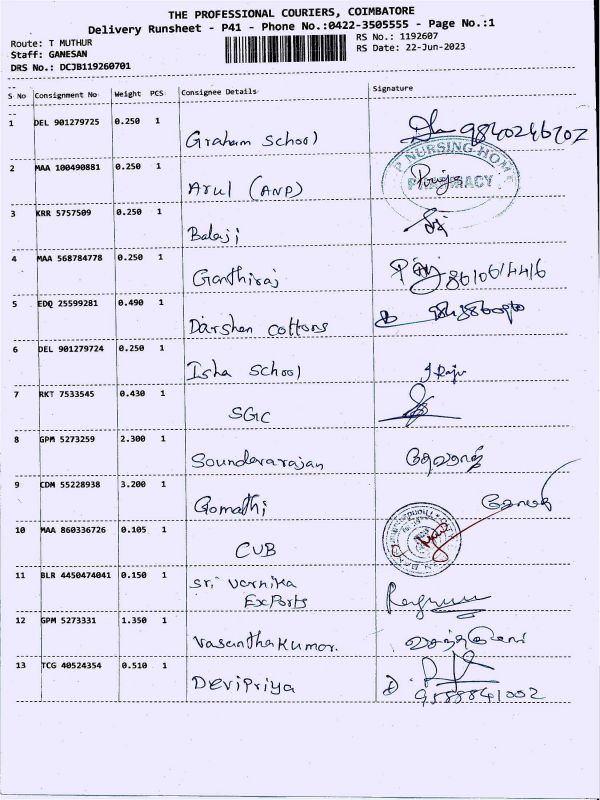 THE PROFESSIONAL COURIERS, COIMBATORE
Delivery Runsheet - P41 - Phone No.:0422-3505555 - Page No.:1
Route: T MUTHUR
RS No.: 1192607
Staff: GANESAN
RS Date: 22-Jun-2023
DRS No.: DCJB119260701
S No Consignment No Weight PCS Consignee Details Signature
1 DEL 901279725 0.250 1 Graham School 9840246702
2 MAA 100490881 0.250 1 Arul (ANP) Priya
P NURSING HOME
PHARMACY
3 KRR 5757509 0.250 1 Balaji
4 MAA 568784778 0.250 1 Ganthiraj
5 EDQ 25599281 0.490 1 Darshan cottons
6 DEL 901279724 0.250 1 Isha School J Raju
7 RKT 7533545 0.430 1 SGC
8 GPM 5273259 2.300 1 Soundararajan
9 CDM 55228938 3.200 1 Gomathi
10 MAA 860336726 0.105 1 CUB
11 BLR 4450474041 0.150 1 Sri Varnika
Exports
12 GPM 5273331 1.350 1 Vasanthakumar.
13 TCG 40524354 0.510 1 Devipriya 9588841002